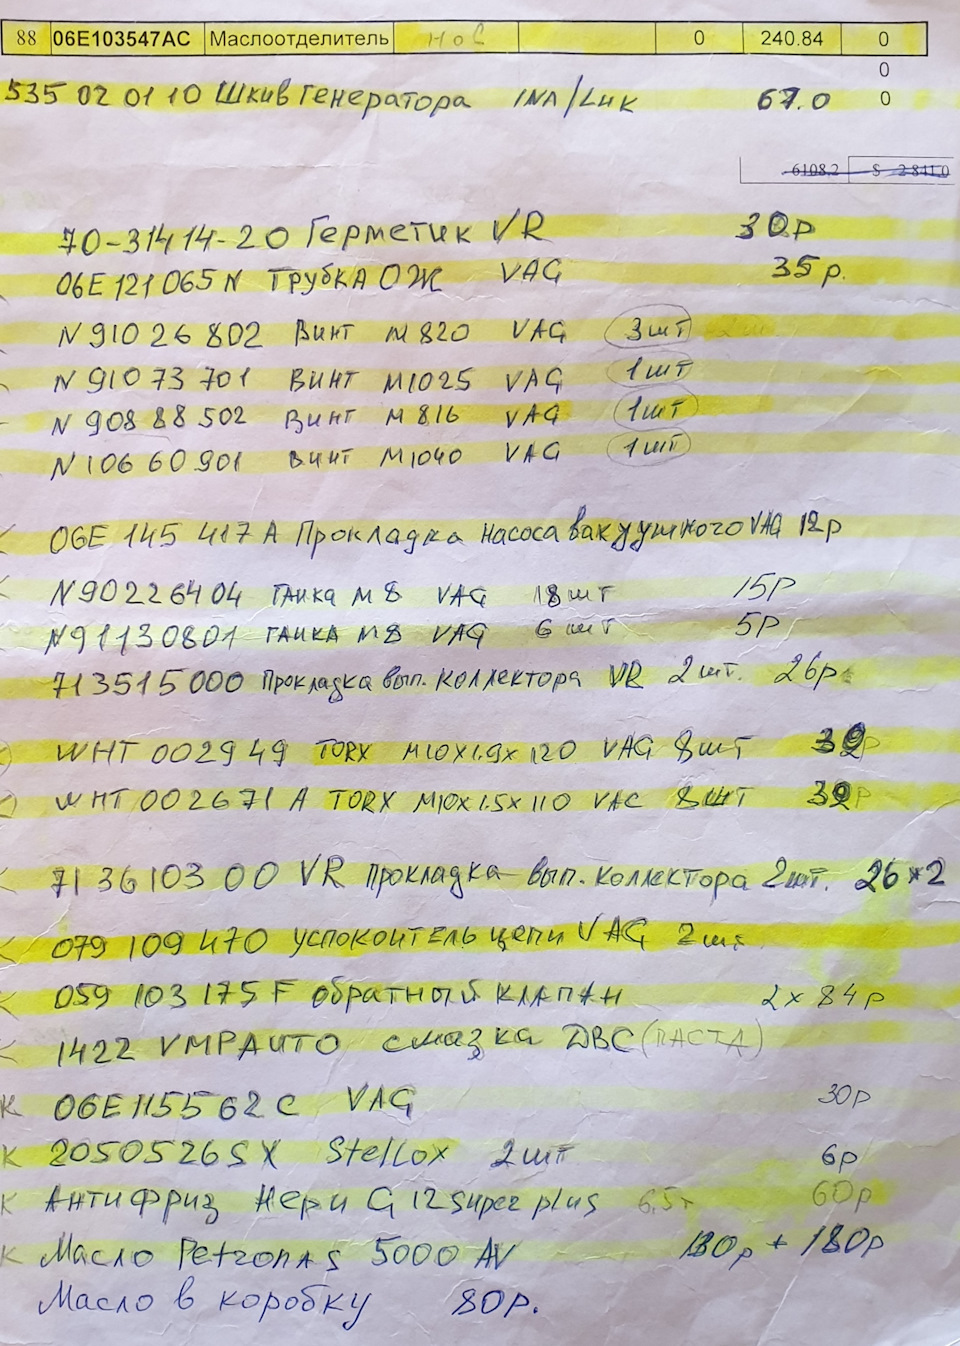 88 06E103547AC Маслоотделитель нов 0 240.84 0
0
535 02 01 10 Шкив генератора INA/Luk 67.0 0
6108.2 S 2 841.0
70-31414-20 Герметик VR 30р
06E 121 065 N Трубка ОЖ VAG 35р.
N 910 26 802 Винт М 820 VAG 3шт
N 910 73 701 Винт М1025 VAG 1шт
N 908 88 502 Винт М 816 VAG 1шт
N 106 60 901 Винт М1040 VAG 1шт
06E 145 417 A Прокладка насоса вакуумного VAG 12р
N90226404 гайка М 8 VAG 18шт 15р
N91130801 гайка М8 VAG 6 шт 5р
713515000 Прокладка вып. коллектора VR 2шт. 26р
WHT 002949 TORX М10х1.9х120 VAG 8шт
WHT 002671 A TORX М10х1.5х110 VAG 8шт
713610300 VR прокладка вып. коллектора 2шт. 26*2
079 109 470 успокоитель цепи VAG 2шт
059 103 175 F обратный клапан 2х84р
1422 VMPAUTO смазка ДВС (паста)
К 06E115562C VAG 30р
К 2050526SX Stellox 2шт 6р
К Антифриз Hepu G12 super plus 6,5л 60р
К Масло Petronas 5000 AV 180р + 180р
Масло в коробку 80р.